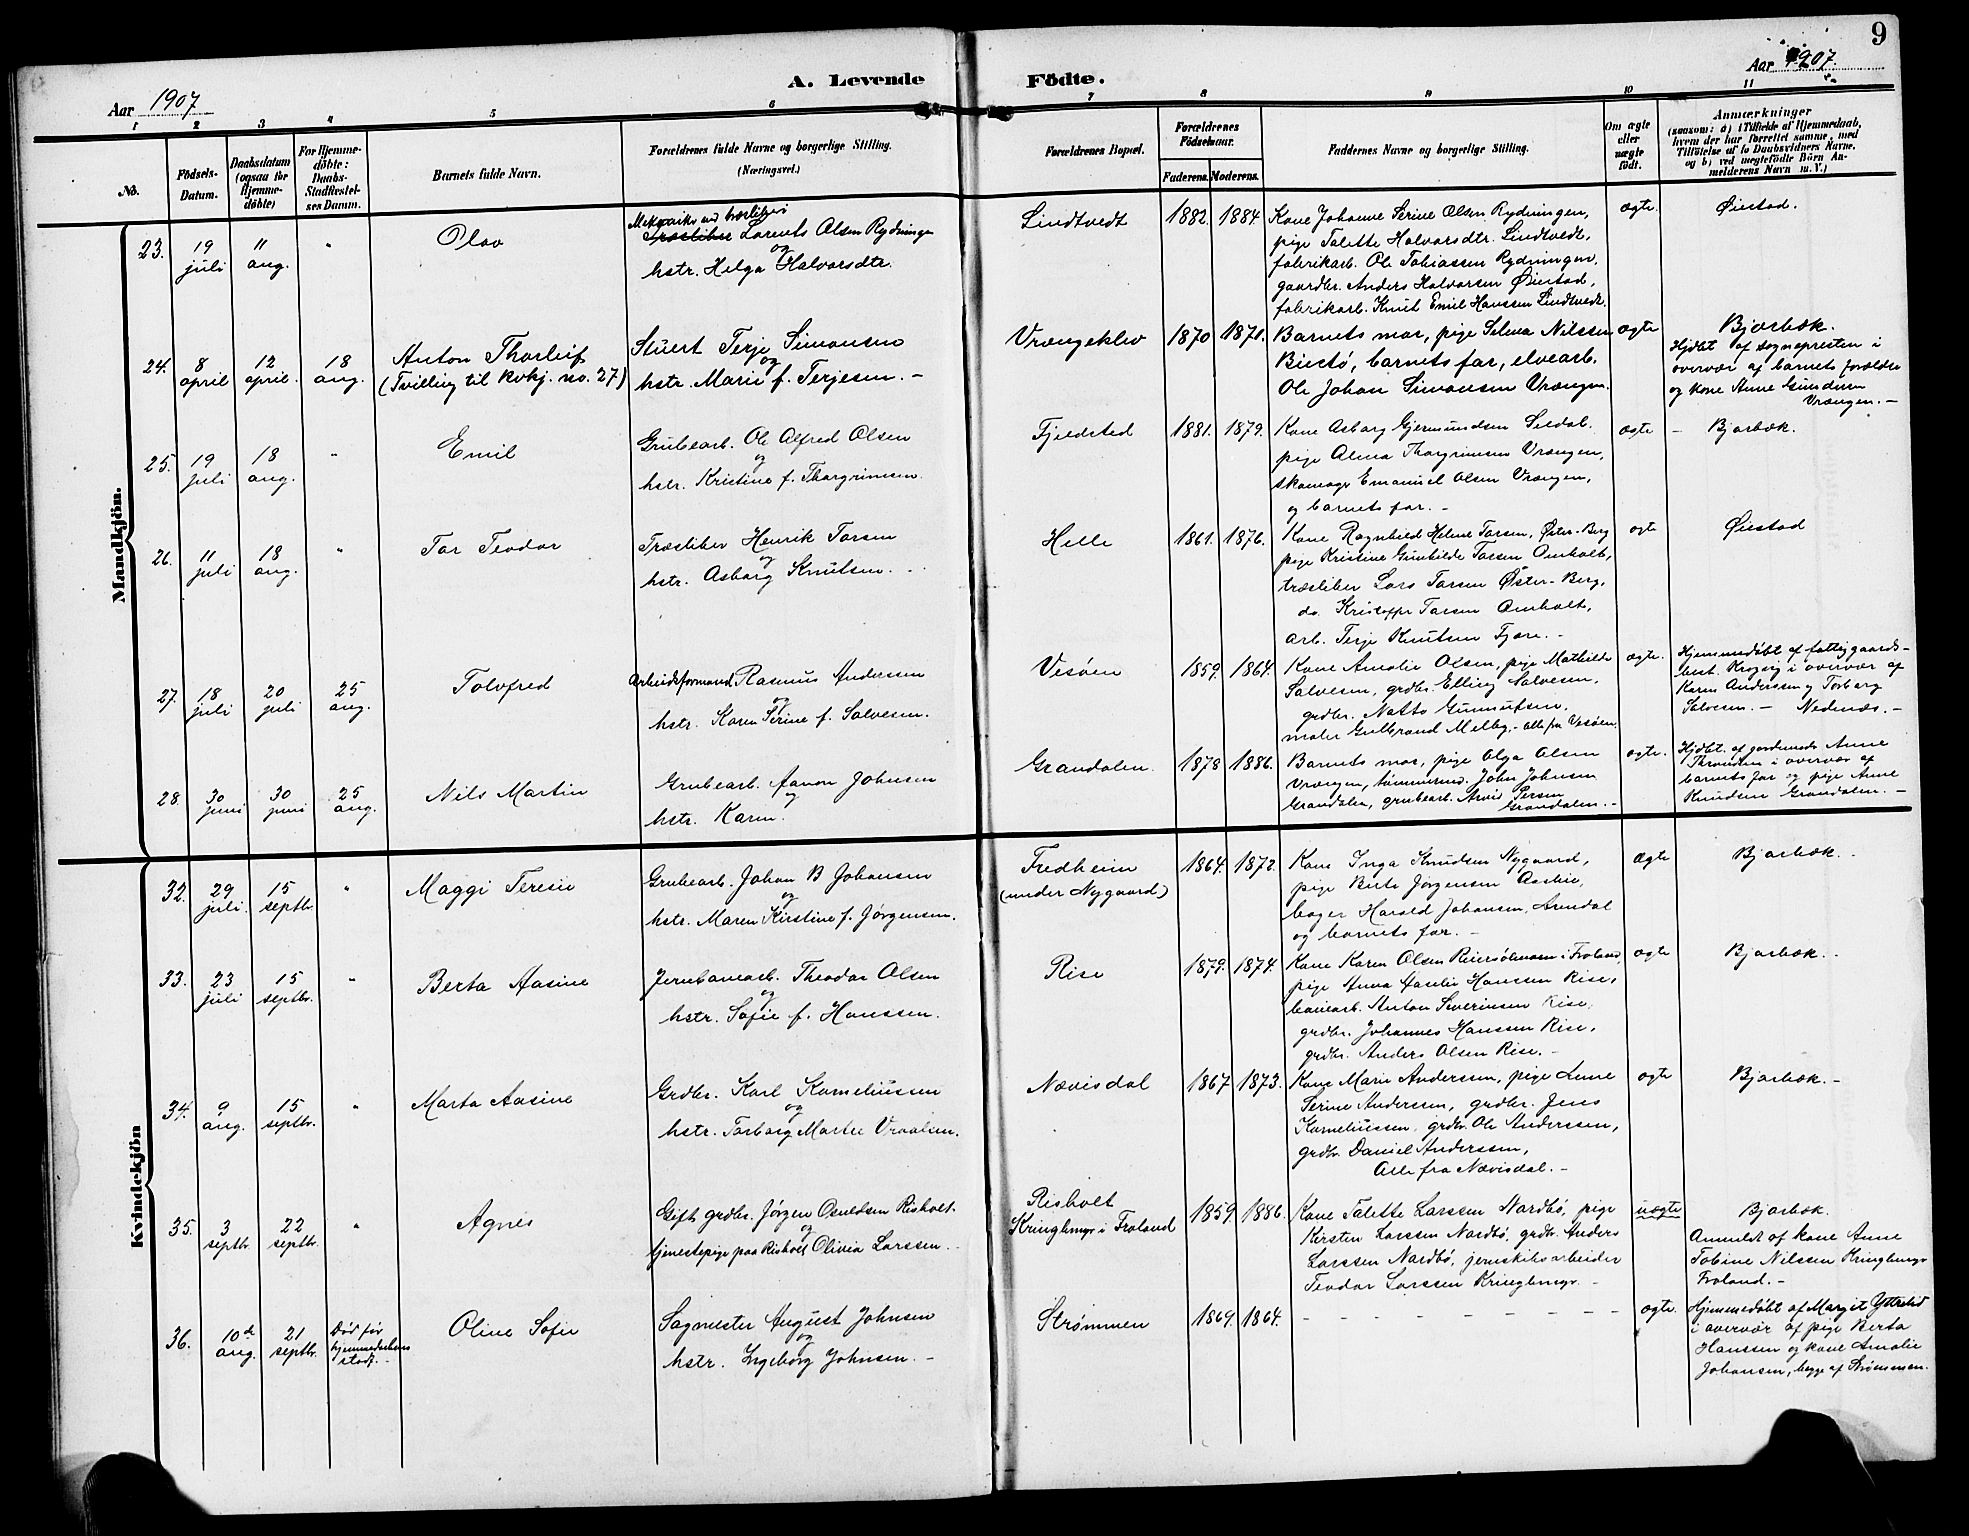 9
A. Levende Födte.
Aar 1907
Aar 1907.
1 2 3 4 5 6 7 8 9 10 11
No.
Födsels-
Datum.
Daabsdatum
(ogsaa for
Hjemme-
döbte)
For Hjemme-
döbte:
Daabs-
Stadfæstel-
ses Datum.
Barnets fulde Navn.
Forældrenes fulde Navne og borgerlige Stilling.
(Næringsvei.)
Forældrenes Bopæl.
Forældrenes
Födselsaar.
Faderens. Moderens.
Faddernes Navne og borgerlige Stilling.
Om ægte
eller
uægte
födt.
Anmærkninger
(saasom: a) i Tilfælde af Hjemmedaab,
hvem der har forrettet samme, med
Tilföielse af to Daabsvidners Navne,
og b) ved uægtefödte Börn An-
melderens Navn m. V.)
Mandkjön.
23.
19
juli
11
aug.
"
Olav
Træsliber Lorents Olsen Rydningen
og
hstr. Helga Halvorsdtr.
Lindtvedt
1882. 1884.
Kone Johanne Serine Olsen Rydningen,
pige Talette Halvorsdtr. Lindtvedt,
fabrikarb. Ole Tobiassen Rydningen,
gaardbr. Anders Halvorsen Øiestad,
fabrikarb. Knut Emil Hanssen Lindtvedt.
ægte.
Øiestad.
24.
8
april
12
april.
18
aug.
Anton Thorleif
(Tvilling til kvkj. no. 27)
Stuert Terje Simonsen
og
hstr. Marie f. Terjesen. -
Vrængeklev
1870 1871.
Barnets mor, pige Selma Nilssen
Biestø, barnets far, elvearb.
Ole Johan Simonsen Vrængen.
ægte
Bjorbæk.
Hjdbt af sogneprestn i
overvær af barnets forældre
og kone Anne Gundersen
Vrængen. -
25.
19
juli
18
aug.
"
Emil
Grubearb. Ole Alfred Olsen
og
hstr. Kristine f. Thorgrimsen.
Fjeldsted
1881. 1879.
Kone Asborg Gjermundsen Seldal,
pige Alma Thorgrimsen Vrængen,
skomager Emanuel Olsen Vrængen,
og barnets far. -
ægte -
Bjorbæk.
26.
11
juli
18
aug.
"
Tor Teodor
Træsliber Henrik Torsen
og
hstr. Asborg Knutsen.
Helle
1861. 1876.
Kone Ragnhild Helene Torsen, Øster-Berg
pige Kristine Gunhilde Torsen Omholt,
træsliber Lars Torsen Øster-Berg,
do. Kristoffer Torsen Omholt,
arb. Terje Knutsen Fjære. -
ægte
Øiestad
27.
18
juli
20
juli
25
aug.
Tolvfred
Arbeidsformand Rasmus Anderssen
og
hstr. Karen Serine f. Salvesen.
Vesøen
1859. 1864.
Kone Amalie Olsen, pige Mathilde
Salvesen, grdbr. Elling Salvesen,
grdbr. Notto Gunnufsen,
maler Gulbrand Melby, - alle fra Vesøen.
ægte.
Hjemmedøbt af fattiggaards-
best. Krogvig i overvær af
Karen Anderssen og Torborg
Salvesen. - Nedenæs. -
28.
30
juni
30
juni
25
aug.
Nils Martin
Grubearb. Aanon Johnsen
og
hstr. Karen.
Grandalen.
1878 1886.
Barnets mor, pige Olga Olsen
Vrængen, tømmermd. John Johnsen
Grandalen, grubearb. Arvid Persen
Grandalen. -
ægte.
Hjdbt. af jordemods. Anne
Thronsen i overvær af
barnets far og pige Anne
Knudsen Grandalen. -
Kvindekjön
32.
29
juli.
15
septbr.
"
Maggi Teresie
Grubearb. Johan B Johansen
og
hstr. Maren Kirstine f. Jørgensen.
Fredheim
(under Nygaard)
1864. 1872.
Kone Inga Knudsen Nygaard,
pige Berte Jørgensen Aasbie,
bager Harald Johansen, Arendal
og barnets far. -
Ægte
Bjorbæk.
33.
23
juli
15
septbr.
"
Berta Aasine
Jernbanearb. Theodor Olsen
og
hstr. Sofie f. Hanssen.
Rise
1879. 1874.
Kone Karen Olsen Reiersølmoen i Froland,
pige Anna Amalie Hanssen Rise,
banearb. Anton Severinsen Rise,
grdbr. Johannes Hanssen Rise,
grdbr. Anders Olsen Rise. -
ægte
Bjorbæk.
34.
9
aug.
15
septbr.
"
Marta Aasine
Grdbr. Karl Korneliussen
og
hstr. Torborg Martee Vraalsen.
Nævisdal
1867 1873.
Kone Marie Anderssen, pige Lene
Serine Anderssen, grdbr. Jens
Korneliussen, grdbr. Ole Anderssen,
grdbr. Daniel Anderssen,
Alle fra Nævisdal. -
ægte
Bjorbæk. -
35.
3
septbr.
22
septbr.
"
Agnes
Gift grdbr. Jørgen Osuldsen Risholt
og
tjenestepige paa Risholt Olivia Larssen.
Risholt
Kringlemyr i Froland
1859. 1886.
Kone Talette Larssen Nordbø, pige
Kirsten Larssen Nordbø, grdbr. Anders
Larssen Nordbø, jernskibsarbeider
Teodor Larssen Kringlemyr. -
uægte
Bjorbæk.
Anmeldt af kone Anne
Tobine Nilssen Kringlemyr
Froland. -
36.
10de
aug.
21
septbr.
Død før
hjemmedaabens
stadf. -
Oline Sofie
Sagmester August Johnsen
og
hstr. Ingeborg Johnsen. -
Strømmen
1869. 1864.
- - - - - - -
ægte.
Hjemmedøbt af Margit Yttrelid
i overvær af pige Berta
Hanssen og kone Amalie
Johansen, begge af Strømmen.